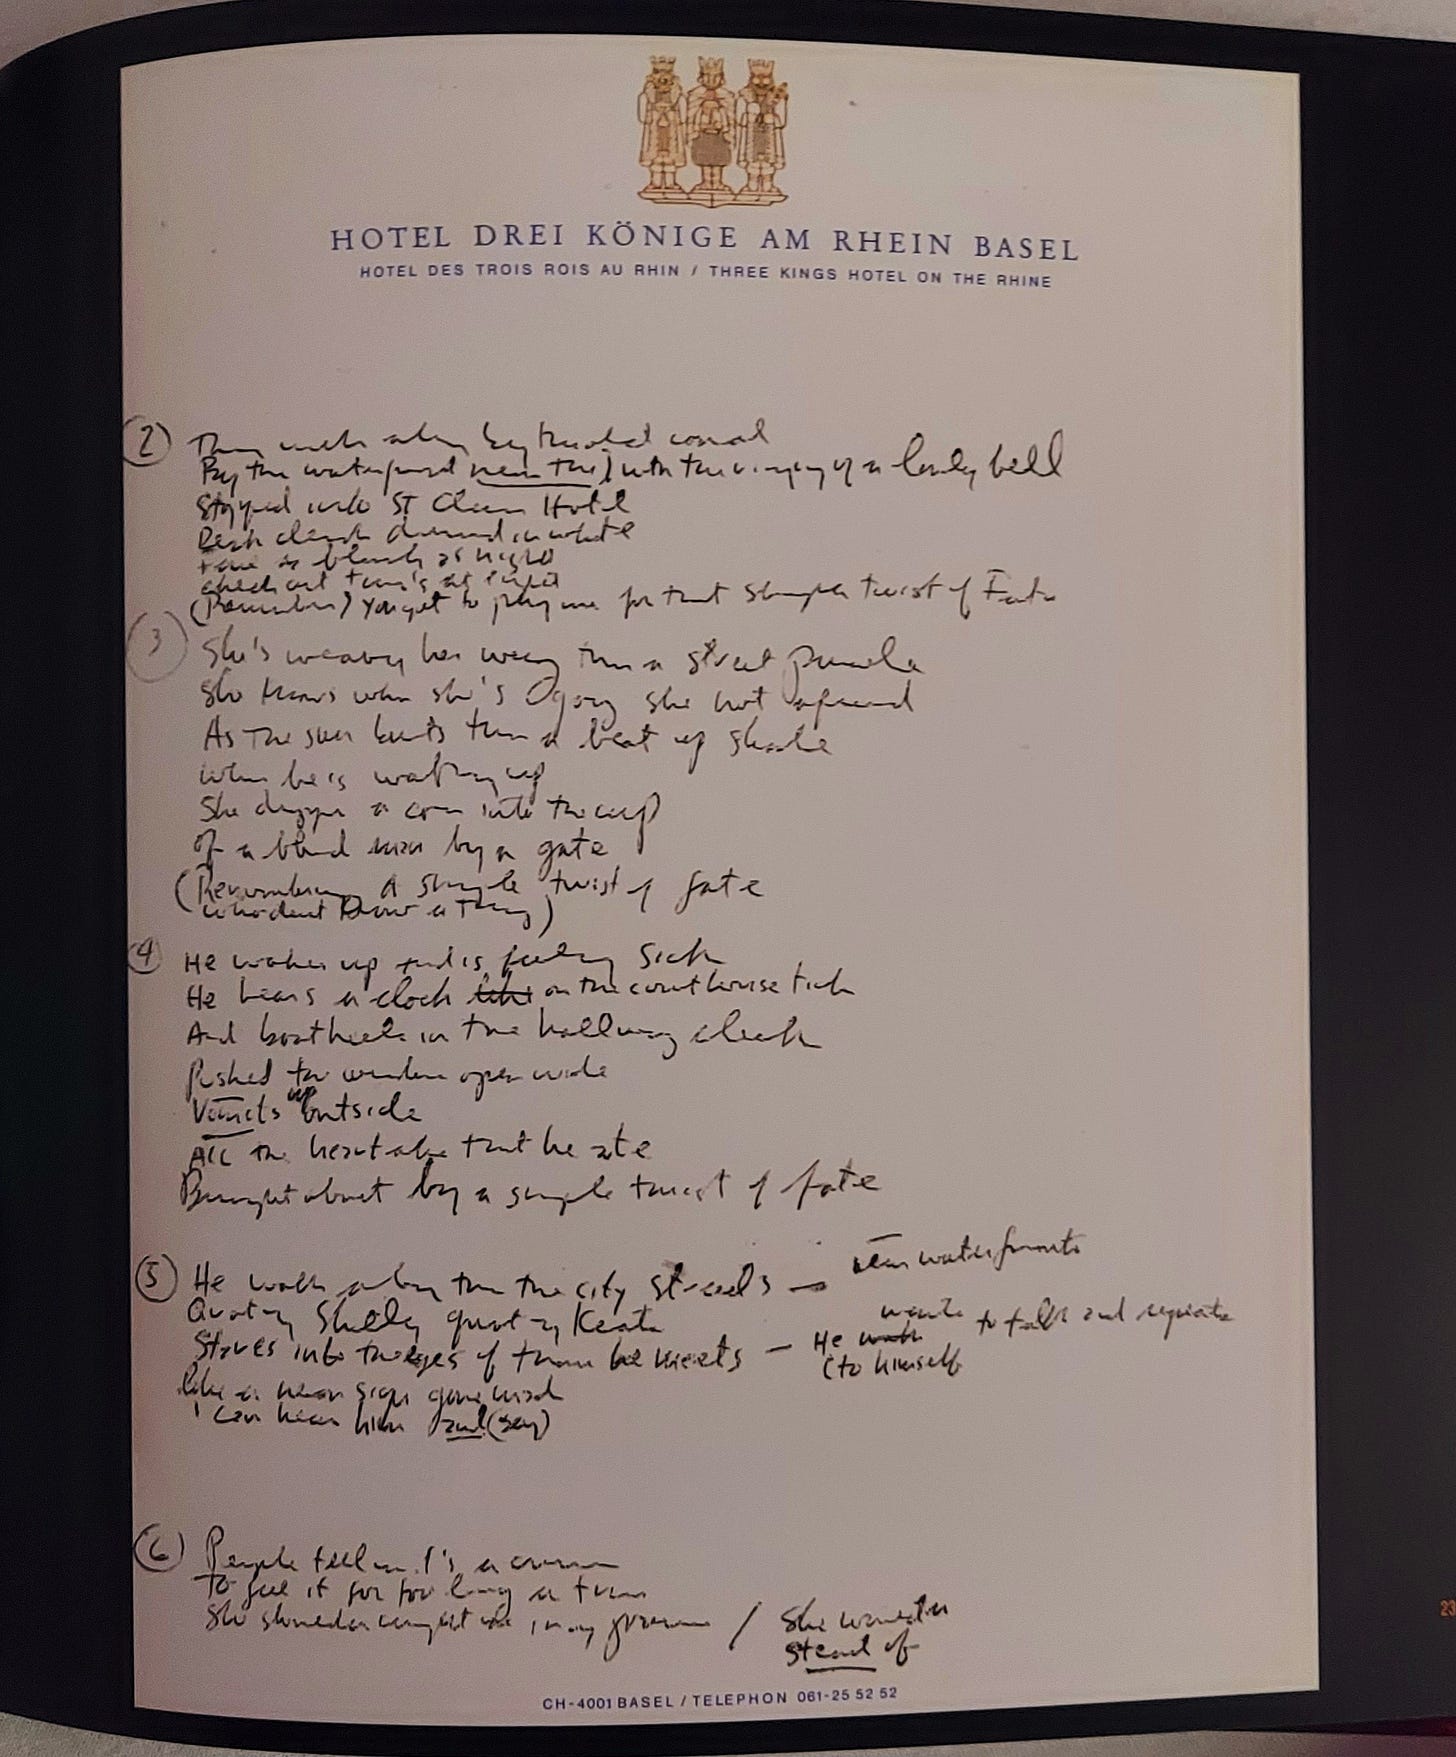 HOTEL DREI KÖNIGE AM RHEIN BASEL
HOTEL DES TROIS ROIS AU RHIN / THREE KINGS HOTEL ON THE RHINE
2 They walk along by the old canal
By the waterfront near the) with the ringing of a lonely bell
Stopped into St Hotel
Desk clerk dressed in white
face as black as night
check out time's at eight
(Remember) You got to pay me for that simple twist of Fate
3 She's weaving her way thru a street parade
She knows when she's going she not afraid
As the sun beats thru a beat up shade
When he is waking up
She drops a coin into the cup
of a blind man by a gate
(Remembering A simple twist of fate
who don't know a thing)
4 He wakes up and is feeling sick
He hears a clock like on the courthouse tick
And bootheels in the hallway click
Pushed the window open wide
Vomits up outside
All the heartache that he ate
Brought about by a simple twist of fate
5 He walks along thru the city streets — near waterfronts
Quoting Shelly quoting Keats
Stares into the eyes of them he meets — He wants to talk and
(to himself
like a neon sign gone mad
I can hear him and (say)
6 People tell me t's a crime
To feel it for too long a time
She shoulda caught me in my prime / She
stead of
CH-4001 BASEL / TELEPHON 061-25 52 52
23